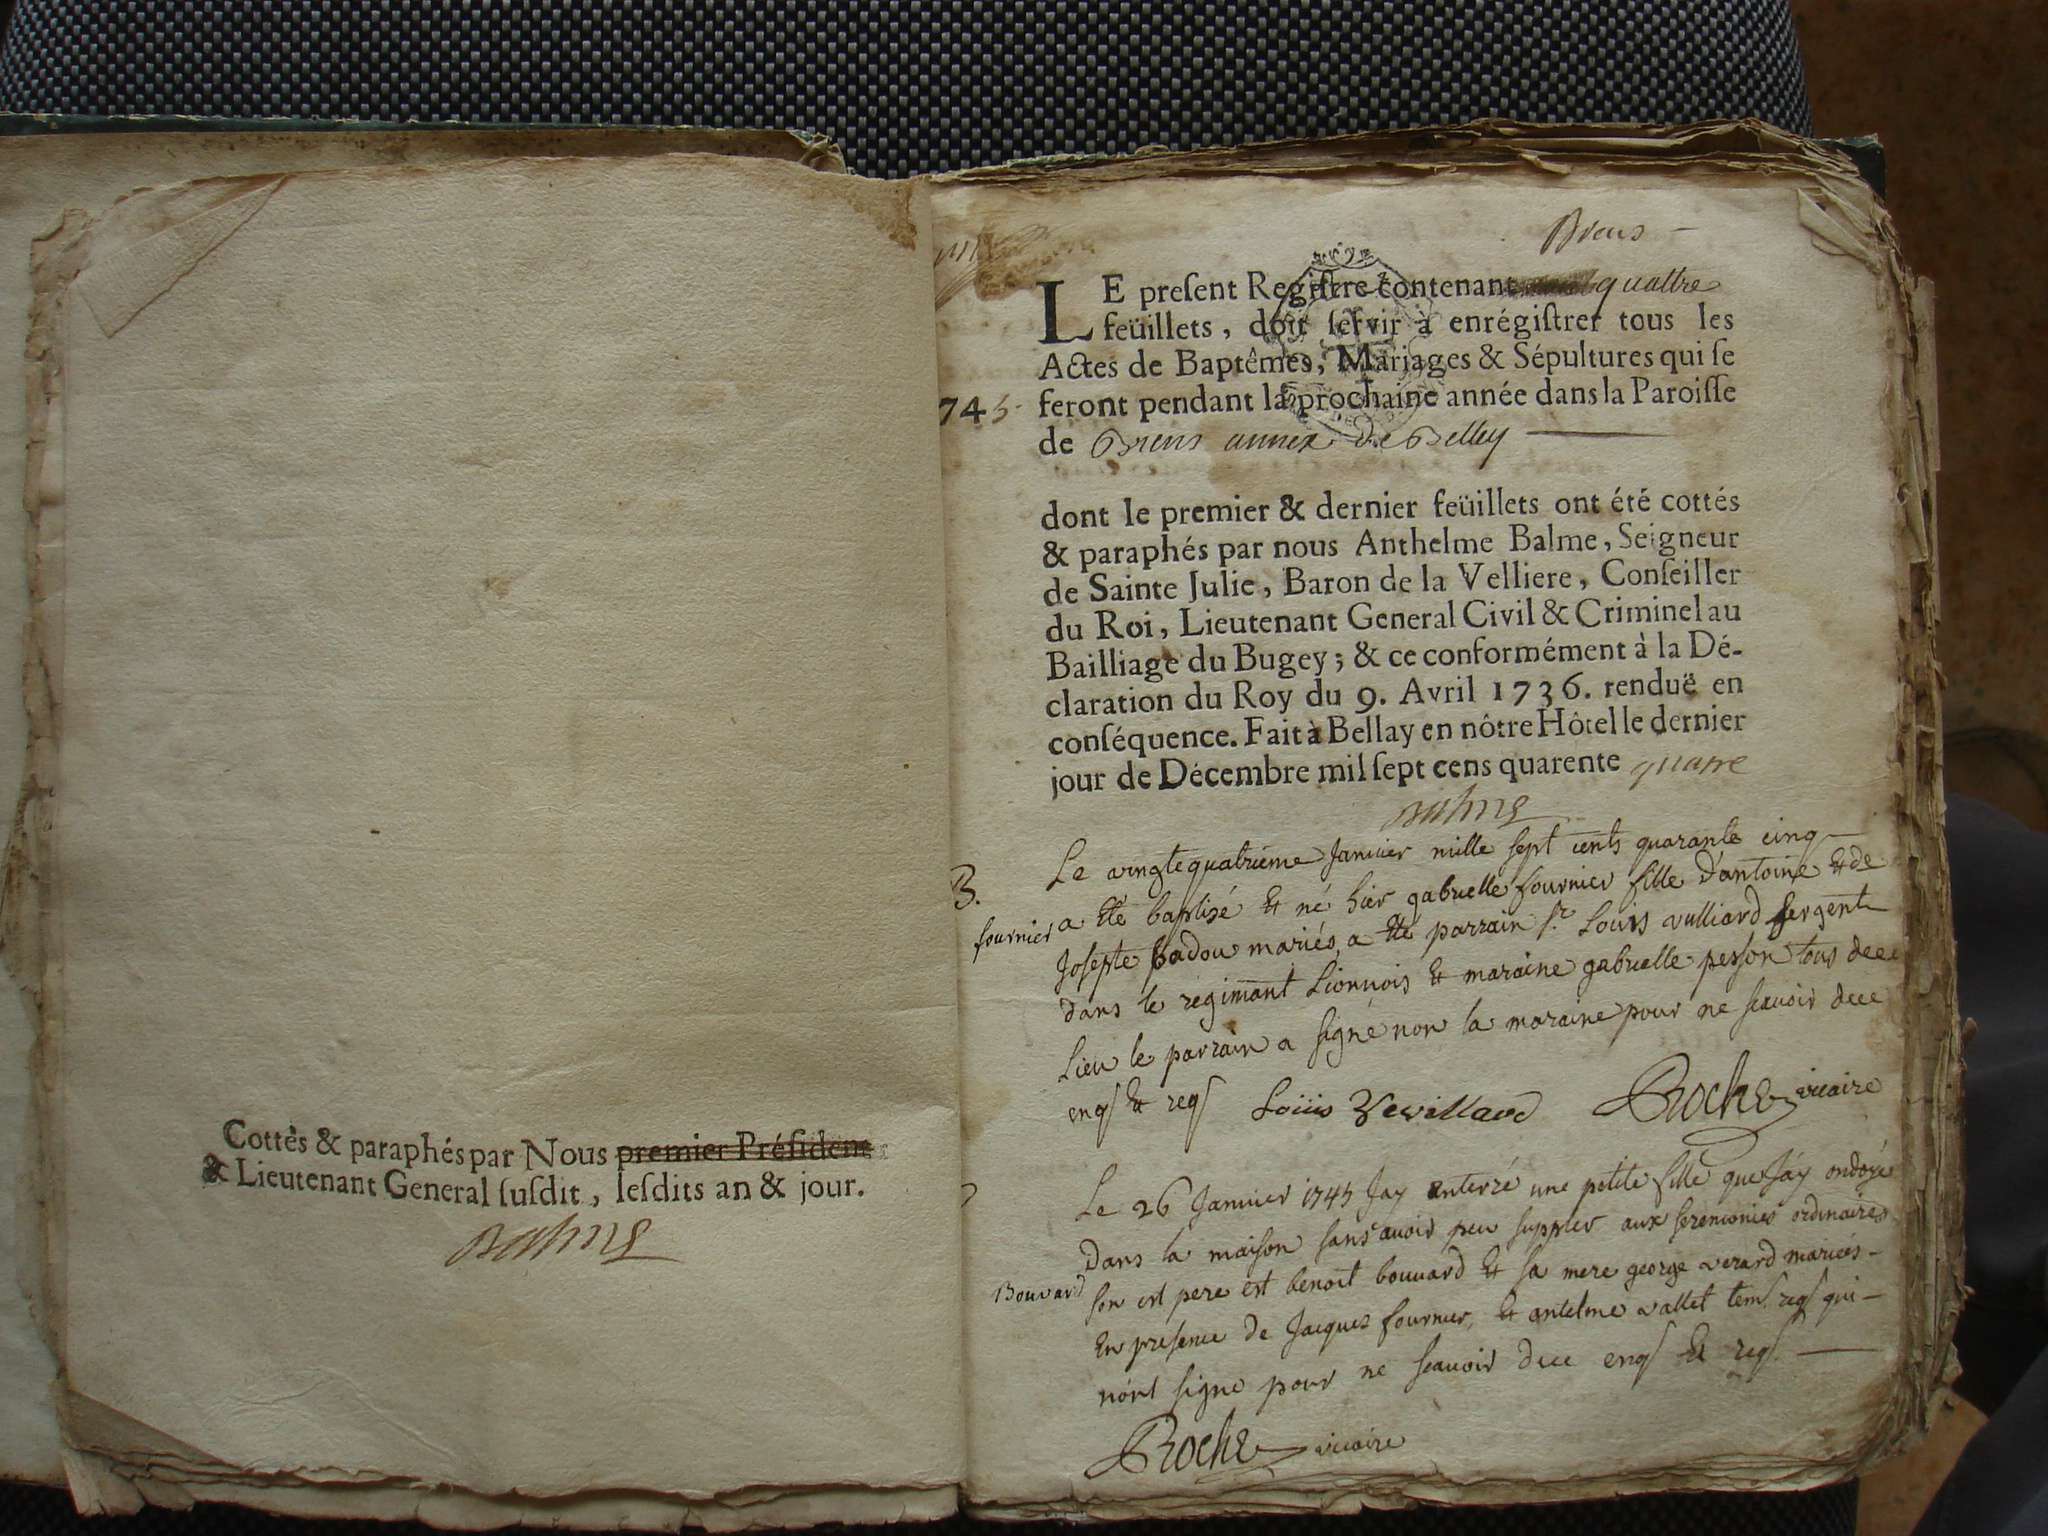 Cottés & paraphés par Nous premier Préſident
& Lieutenant General ſuſdit, leſdits an & jour.
Balme
Brens
LE preſent Regiſtre contenant quattre
feüillets, doit ſervir à enrégiſtrer tous les
Actes de Baptêmes, Mariages & Sépultures qui ſe
745 feront pendant la prochaine année dans la Paroiſſe
de Brens annex de Belley
dont le premier & dernier feüillets ont été cottés
& paraphés par nous Anthelme Balme, Seigneur
de Sainte Julie, Baron de la Velliere, Conſeiller
du Roi, Lieutenant General Civil & Criminel au
Bailliage du Bugey; & ce conformément à la Dé-
claration du Roy du 9. Avril 1736. renduë en
conſéquence. Fait à Bellay en nôtre Hôtel le dernier
jour de Décembre mil ſept cens quarente quatre
Balme
B.
fournier
Le vingtequatrieme Janvier mille sept cents quarante cinq
a ete baptisé et né hier gabrielle fournier fille d'antoine et de
Josepte badou mariés, a ete parrain sr. Louis vulliard sergent
dans le regimant Lionnois et maraine gabrielle person tous dece
Lieu le parrain a signé non la maraine pour ne scavoir dece
enqs et reqs Louis Vewillard Roche vicaire
Bouvard
Le 26 Janvier 1745 Jay enterré une petite fille que Jáy ondoyé
dans la maison sans avoir peu supplér aux seremonies ordinaires
son est pere est benoit bouvard et sa mere george verard mariées
En presence de Jacques fournier, et antelme vallet tem. reqs qui
n'ont signe pour ne scavoir dece enqs et reqs.
Roche vicaire